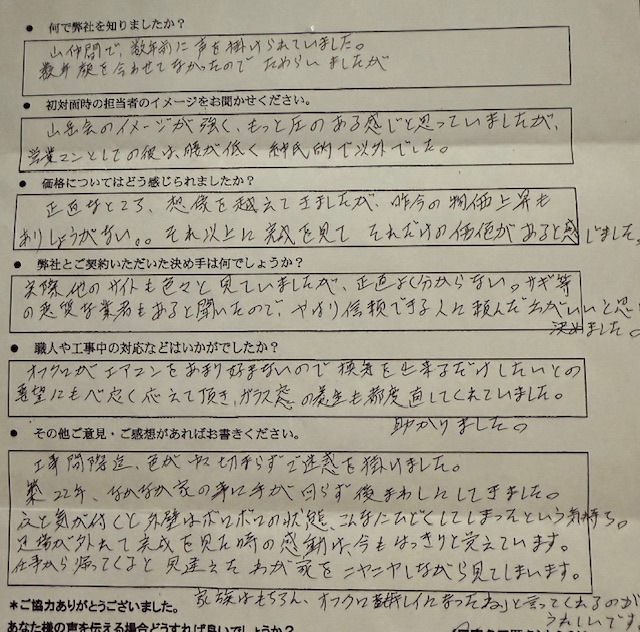 ● 何で弊社を知りましたか？
山仲間で、数年前に声を掛けられていました。
数年顔を合わせてなかったのでためらいましたが
● 初対面時の担当者のイメージをお聞かせください。
山岳会のイメージが強く、もっと圧のある感じと思っていましたが、
営業マンとしての彼は、腰が低く紳民的で以外でした。
● 価格についてはどう感じられましたか？
正直なところ、想像を越えてきましたが、昨今の物価上昇も
ありしょうがない。。それ以上に完成を見てそれだけの価値があると感じました。
● 弊社とご契約いただいた決め手は何でしょうか？
実際他のサイトも色々と見ていましたが、正直よく分からない。サギ等
の悪質な業者もあると聞いたので、やはり信頼できる人に頼んだ方がいいと思い
決めました。
● 職人や工事中の対応などはいかがでしたか？
オフクロがエアコンをあまり好まないので換気を出来るだけしたいとの
要望にもべ応えて頂き、ガラス窓の養生も都度直してくれていました。
助かりました。
● その他ご意見・ご感想があればお書きください。
工事間際迄、色が切まらずで迷惑を掛けました。
築22年、なかなか家の事に手が回らず後まわしにしてきました。
ふと気が付くと外壁はボロボロの状態、こんなにひどくしてしまったという気持ち。
足場が外れて完成を見た時の感動は、今もはっきりと覚えています。
仕事から帰ってくると見違えたわが家をニヤニヤしながら見てしまいます。
家族はもちろん、オフクロも「キレイになったね」と言ってくれるのが
うれしいです
＊ご協力ありがとうございました。
あなた様の声を伝える場合どうすれば良いでしょうか？